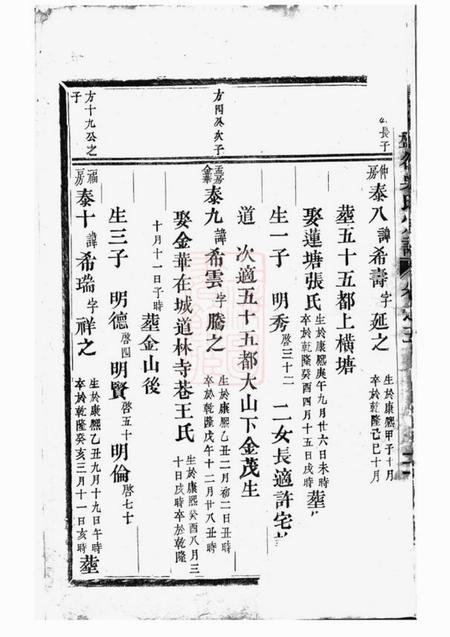 長子
仲房 泰八 諱希壽字延之 生於康熙甲子十月 卒於乾隆己巳十月
塟五十五都上橫塘
娶蓮塘張氏 生於康熙庚午九月廿六日未時 卒於乾隆癸酉四月十五日戌時 塟
生一子 明秀 啓三十二 二女長適許宅
道 次適五十五都大山下金茂生
方四癸次子
金華 泰九 諱希雲字騰之 生於康熙乙丑二月初二日丑時 卒於乾隆戊午十二月廿八丑時
娶金華在城道林寺巷王氏 生於康熙癸酉八月三十日戌時卒於乾隆
十月十一日子時 塟金山後
方十九公之子
福房 泰十 諱希瑞字祥之 生於康熙乙丑九月十九日午時 卒於乾隆癸亥三月十一日亥時 塟
生三子 明德 啓四 明賢 啓五十 明倫 啓七十